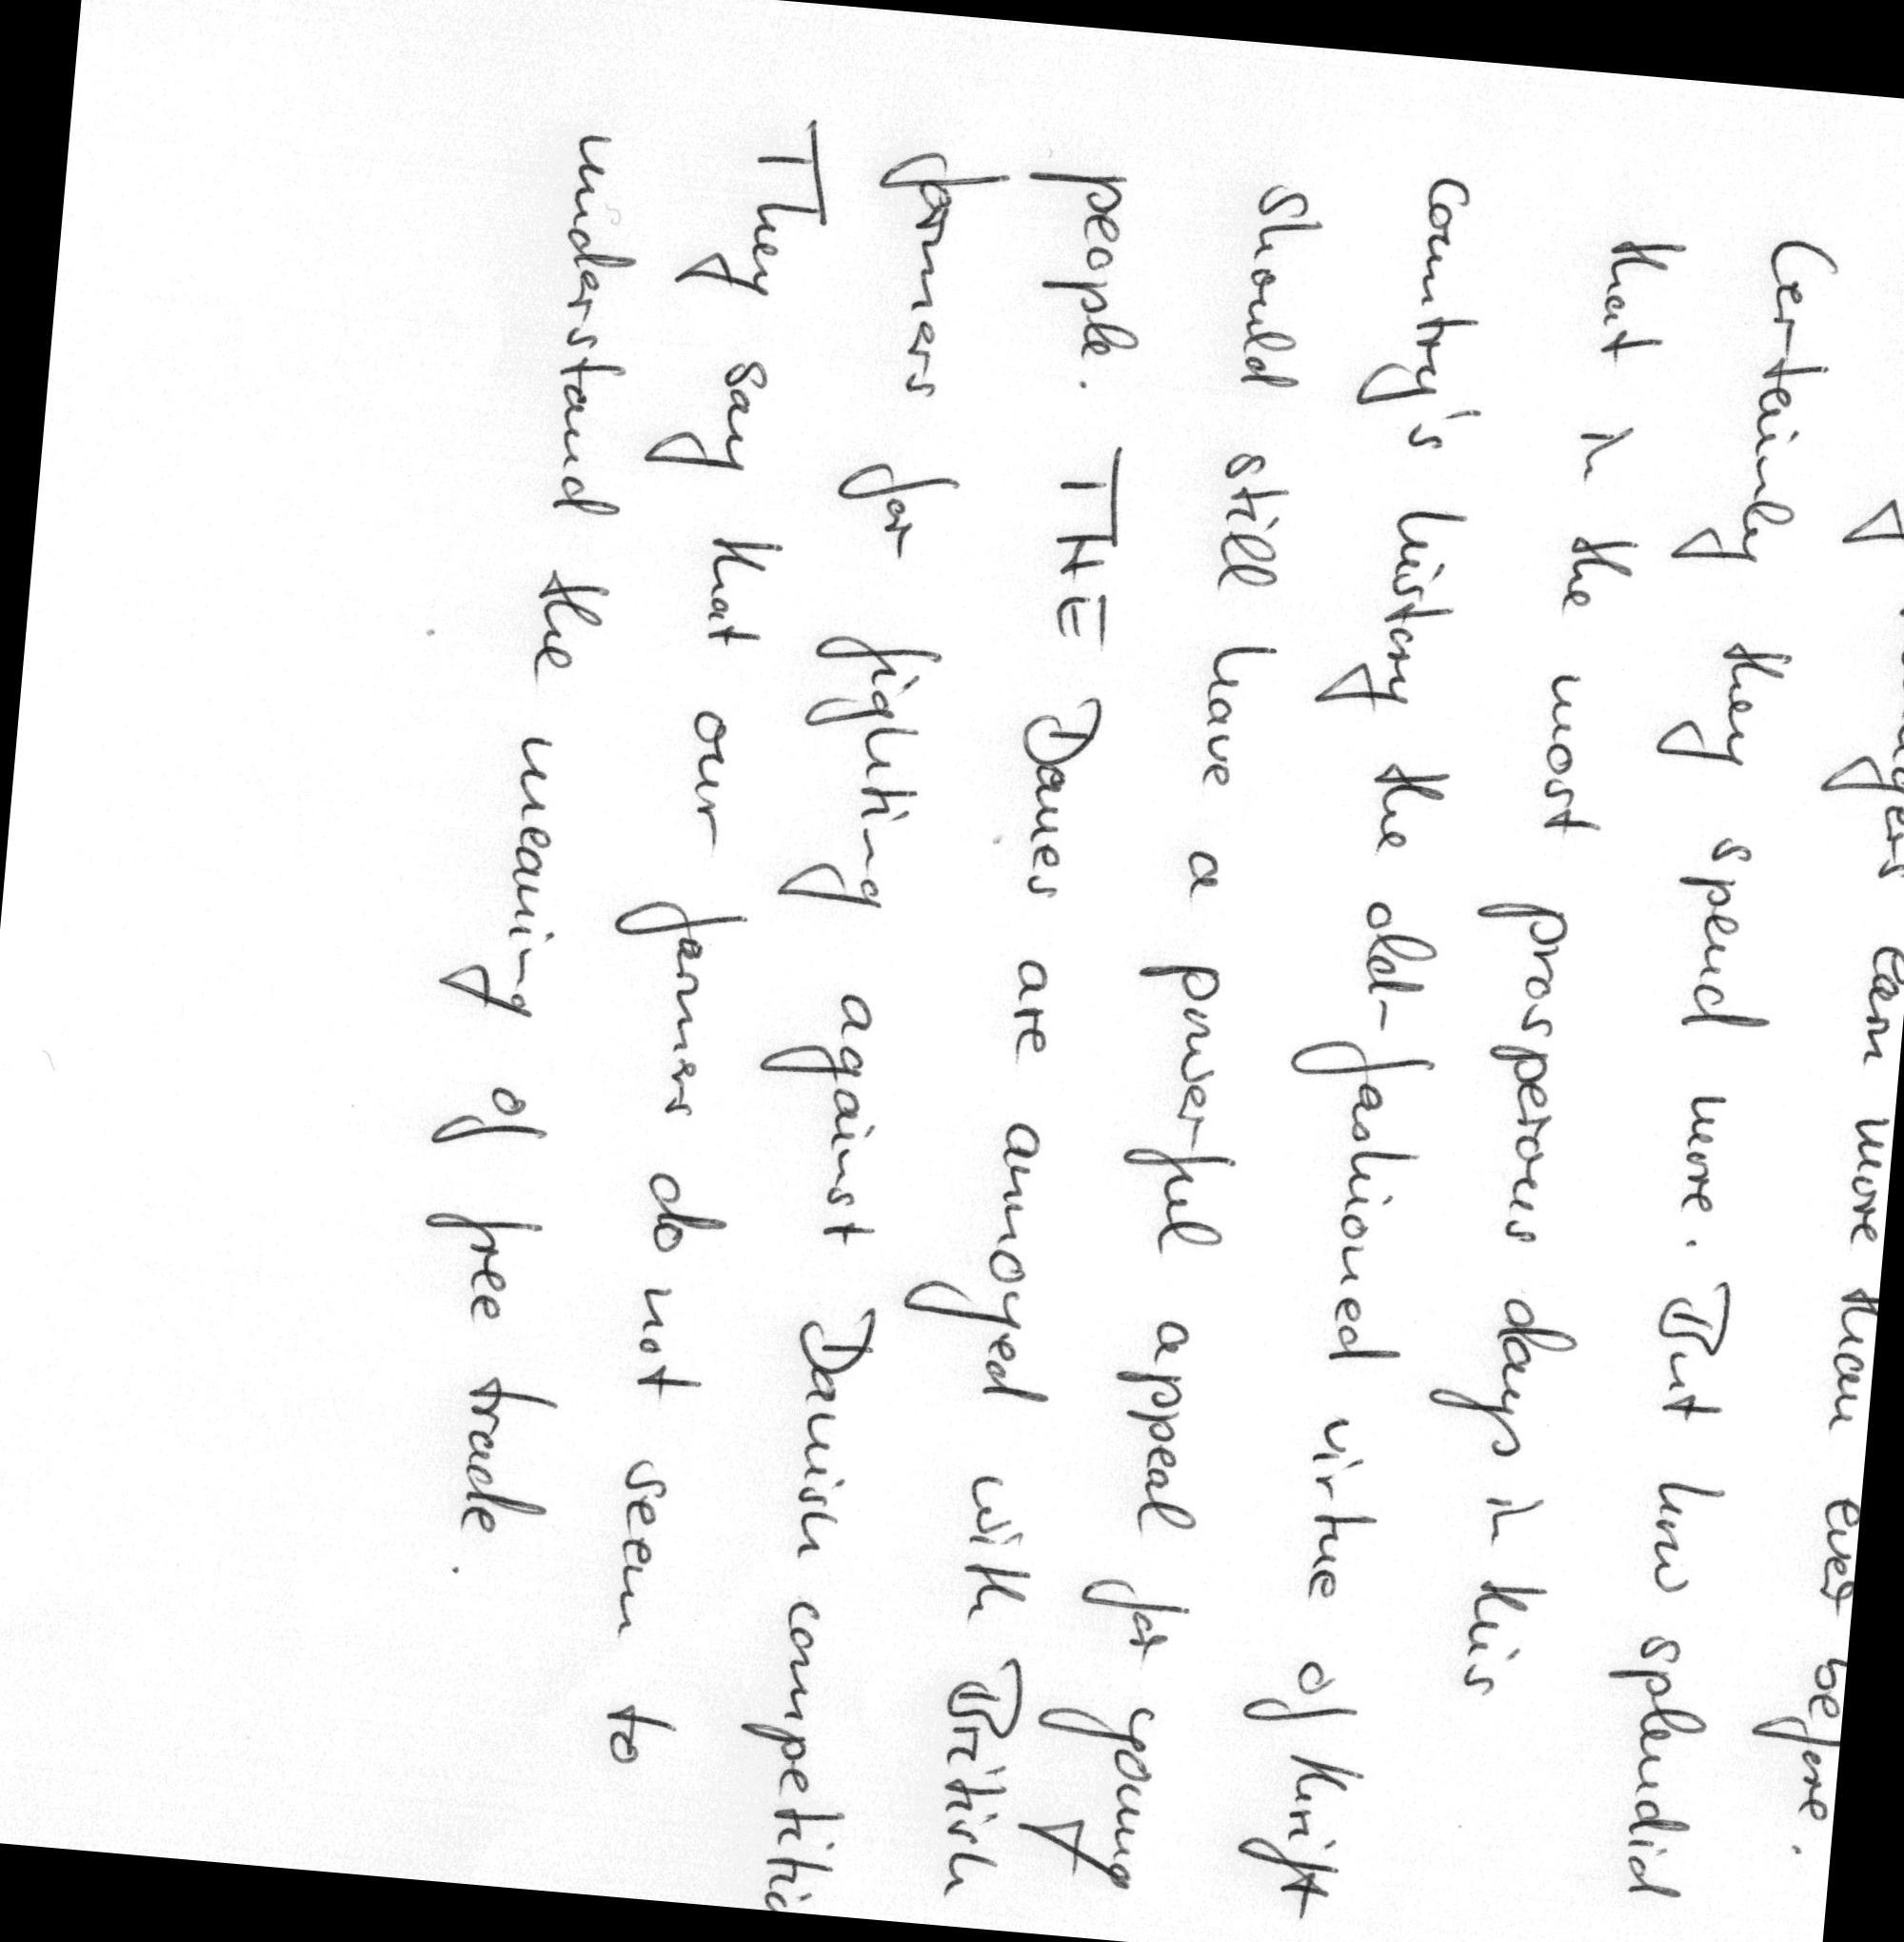 earn more than ever before.
Certainly they spend more. But how splendid
that in the most prosperous days in this
country's history the old-fashioned virtue of thrift
should still have a powerful appeal for young
people. THE Danes are annoyed with British
farmers for fighting against Danish competitio
They say that our farmers do not seem to
understand the meaning of free trade.